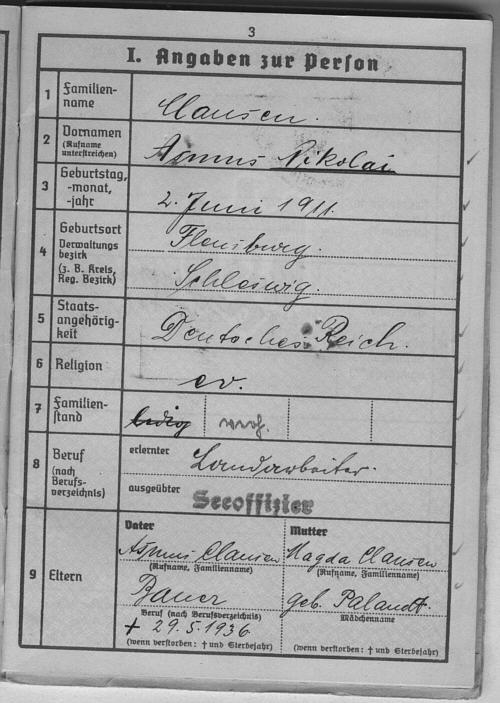 3
I. Angaben zur Person
1 Familien-
name
Clausen.
2 Vornamen
(Rufname
unterstreichen)
Asmus Nikolai
3 Geburtstag,
-monat,
-jahr
2. Juni 1911.
4 Geburtsort
Verwaltungs
bezirk
(z. B. Kreis,
Reg. Bezirk)
Flensburg.
Schleswig.
5 Staats-
angehörig-
keit
Deutsches Reich.
6 Religion
ev.
7 Familien-
stand
ledig verh.
8 Beruf
(nach
Berufs-
verzeichnis)
erlernter
Landarbeiter.
ausgeübter
Seeoffizier
9 Eltern
Vater
Asmus Clausen
(Rufname, Familienname)
Bauer
Beruf (nach Berufsverzeichnis)
† 29.5.1936
(wenn verstorben: † und Sterbejahr)
Mutter
Magda Clausen
(Rufname, Familienname)
geb. Palandt.
Mädchenname
(wenn verstorben: † und Sterbejahr)